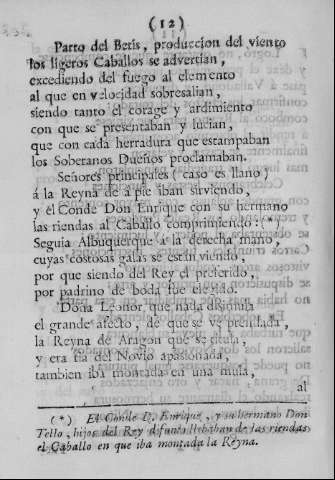 (12)
Parto del Betis, produccion del viento
los ligeros Caballos se advertian,
excediendo del fuego al elemento
al que en velocidad sobresalian,
siendo tanto el corage y ardimiento
con que se presentaban y lucian,
que con cada herradura que estampaban
los Soberanos Dueños proclamaban.
Señores principales (caso es llano)
á la Reyna de á pie iban sirviendo,
y el Conde Don Enrique con su hermano
las riendas al Caballo comprimiendo: (*)
Seguia Alburquerque á la derecha mano,
cuyas costosas galas se están viendo,
por que siendo del Rey el preferido,
por padrino de boda fue elegido.
Doña Leonor que nada disimula
el grande afecto, de que se ve prendada,
la Reyna de Aragon que se titula,
y era tia del Novio apasionada,
tambien iba montada en una mula,
al
(*) El Conde D. Enrique, y su hermano Don
Tello, hijos del Rey difunto llebaban de las riendas
el Caballo en que iba montada la Reyna.